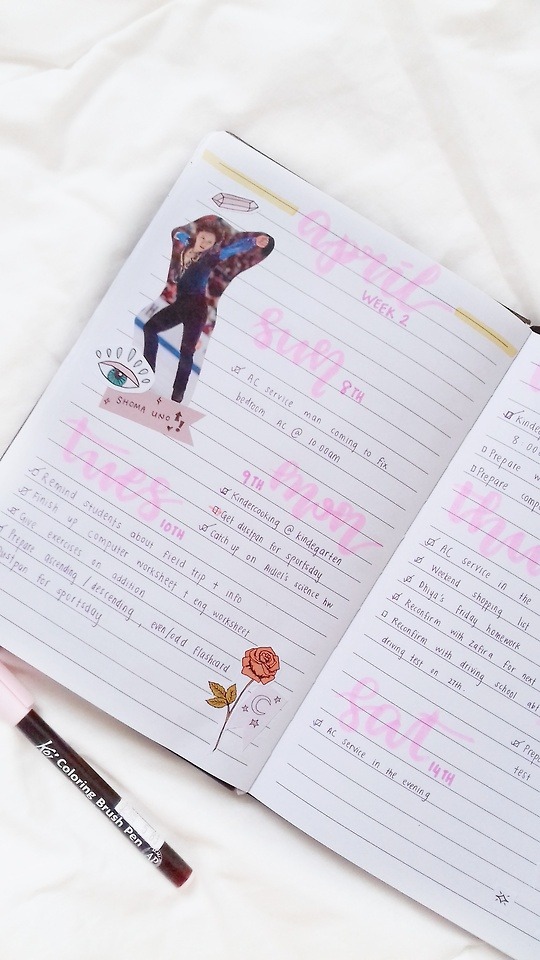 april
WEEK 2
SHOMA UNO
sun 8TH
AC service man coming to fix
bedroom AC @ 10.00am
9TH mon
Kindercooking @ kindegarten
Get dustpan for sportsday
Catch up on Aidiel's science hw
tues 10TH
Remind students about field trip + info
Finish up computer worksheet + eng worksheet
Give exercises on addition
Prepare ascending / descending, even/odd flashcard
Dustpan for sportsday
Kindeg
8.00
Prepare w
Prepare comp
thu
AC service in the
Weekend shopping list
Dhiya's Friday homework
Reconfirm with zafira for next
Reconfirm with driving school abt
driving test on 27th.
sat 14TH
AC service in the evening
Prep
test
Koi Coloring Brush Pen
AP